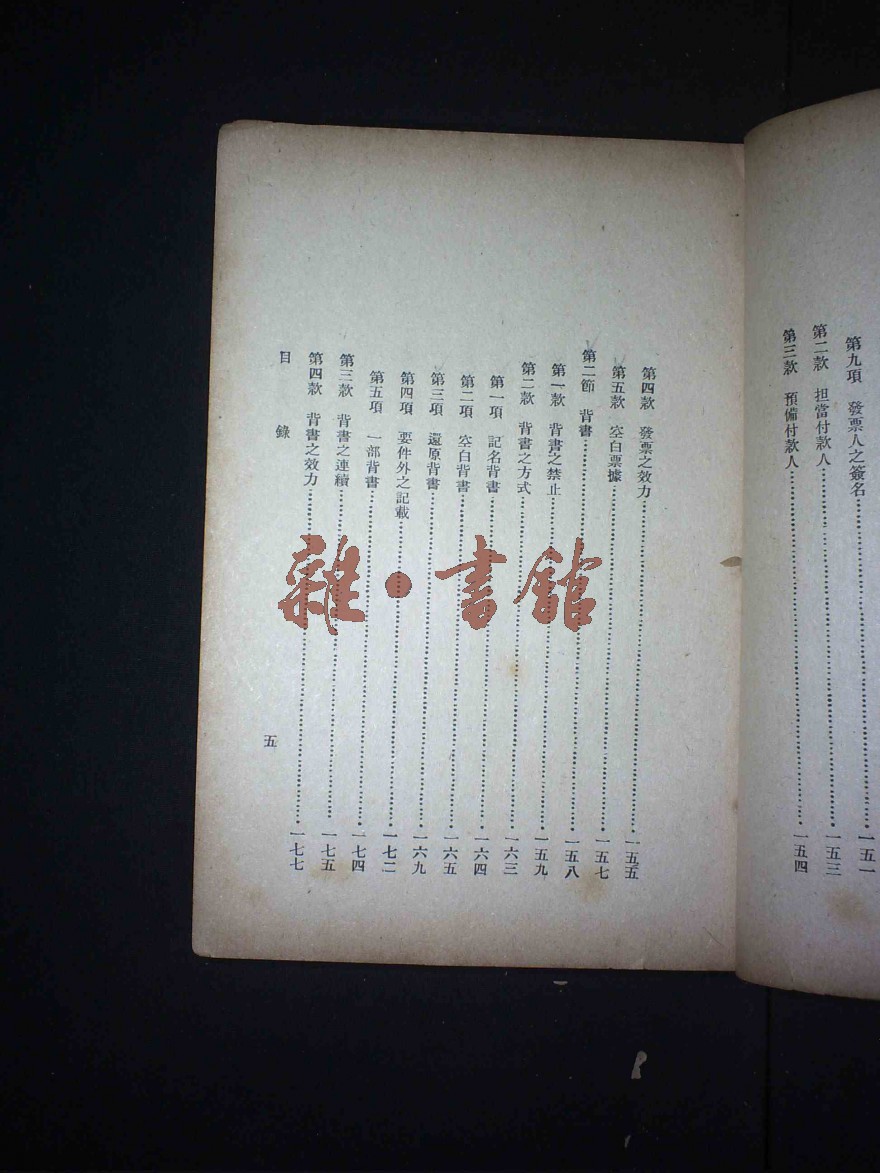 第九項　發票人之簽名……一五一
第二款　担當付款人……一五三
第三款　預備付款人……一五四
第四款　發票之效力……一五五
第五款　空白票據……一五七
第二節　背書……一五八
第一款　背書之禁止……一五九
第二款　背書之方式……一六三
第一項　記名背書……一六四
第二項　空白背書……一六五
第三項　還原背書……一六九
第四項　要件外之記載……一七二
第五項　一部背書……一七四
第三款　背書之連續……一七五
第四款　背書之效力……一七七
目錄
五
雜·書館